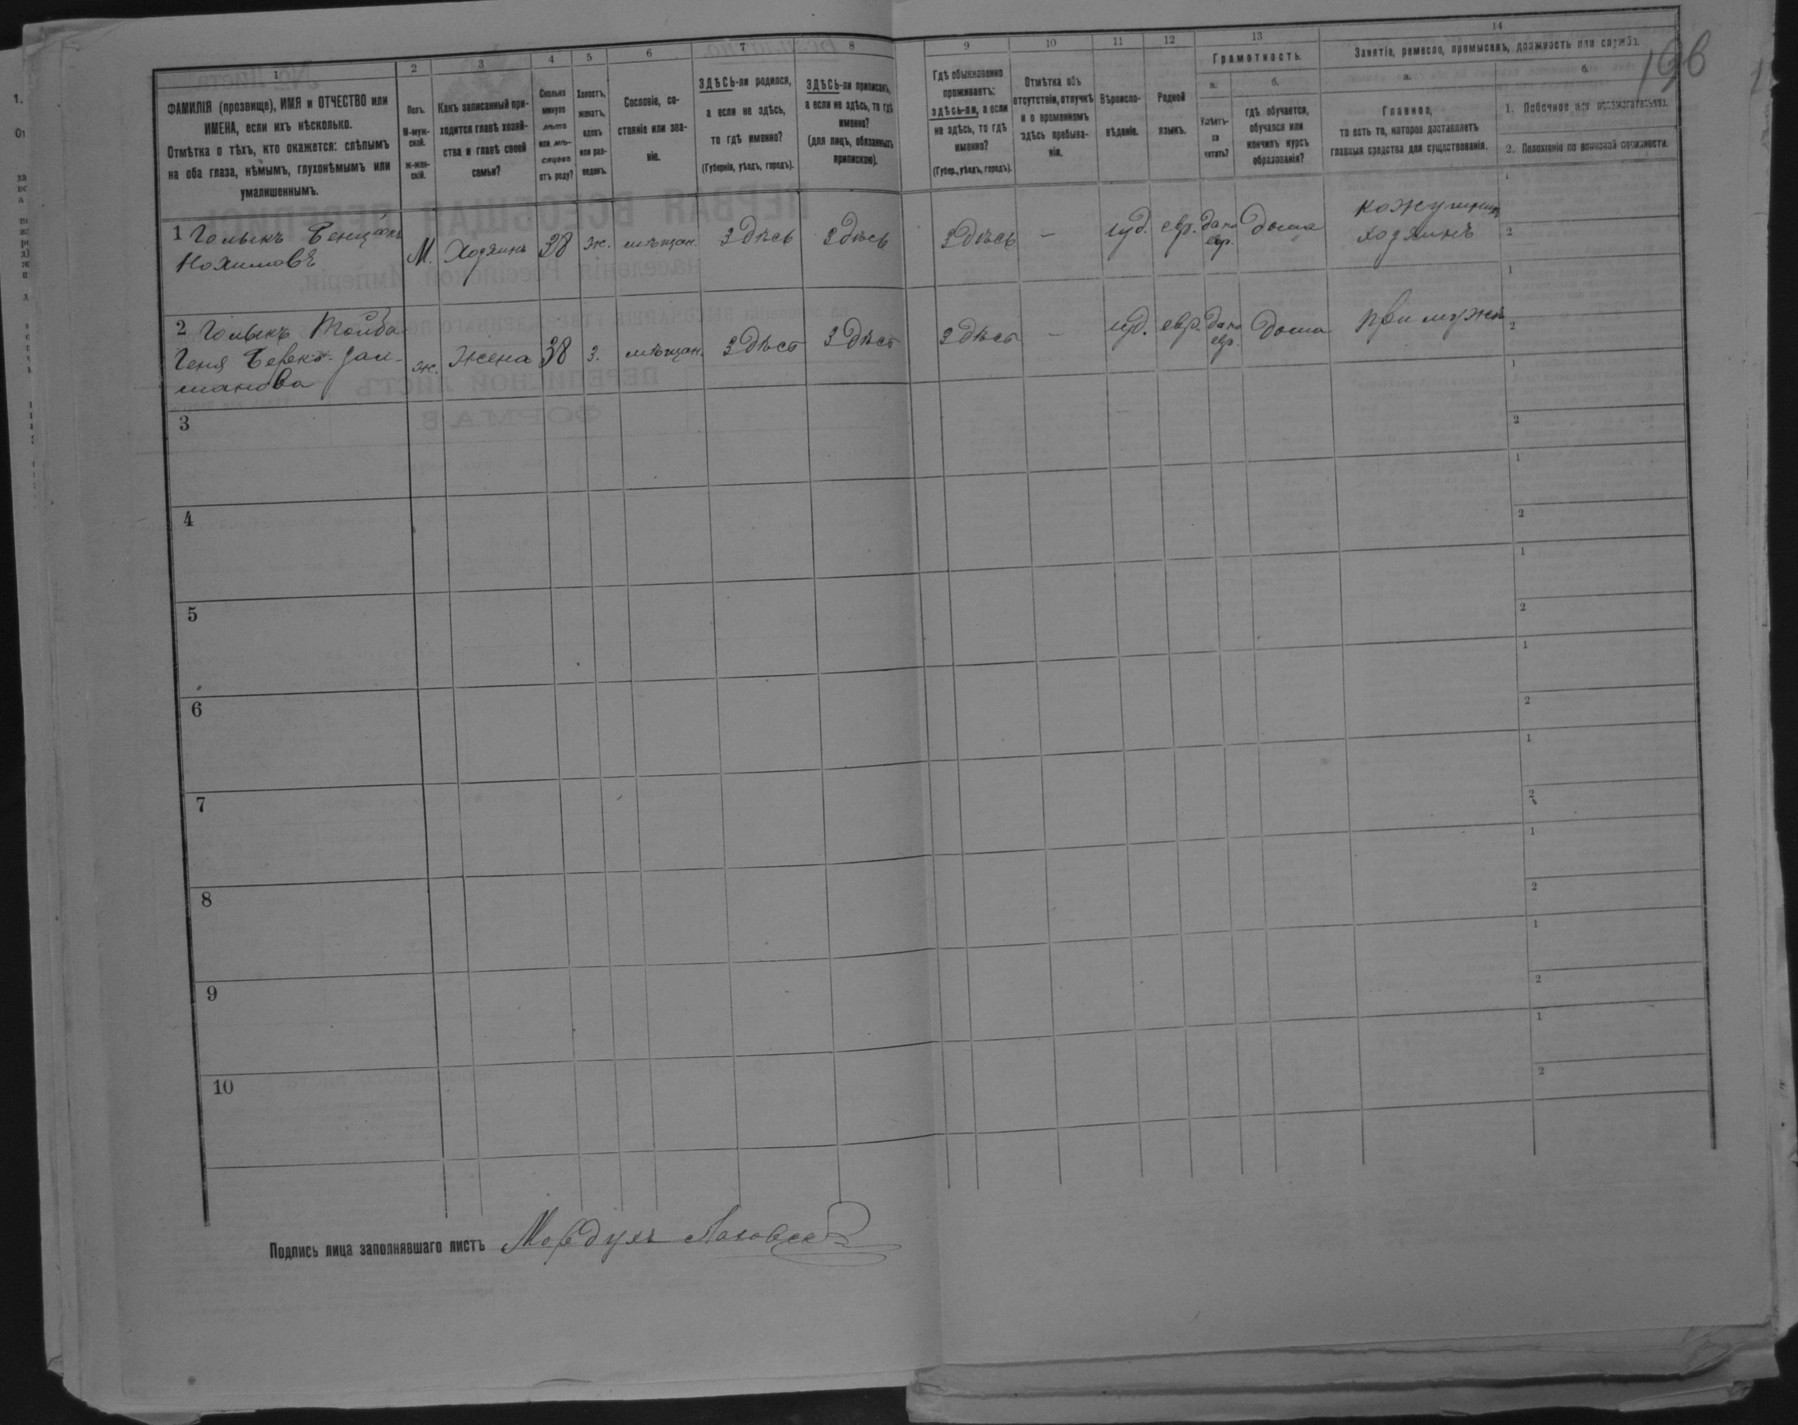 196
1 2 3 4 5 6 7 8 9 10 11 12 13 14
ФАМИЛІЯ (прозвище), ИМЯ и ОТЧЕСТВО или
ИМЕНА, если ихъ нѣсколько.
Отмѣтка о тѣхъ, кто окажется: слѣпымъ
на оба глаза, нѣмымъ, глухонѣмымъ или
умалишеннымъ.
Полъ.
М-муж-
ской.
Ж-жен-
скій.
Какъ записанный при-
ходится главѣ хозяй-
ства и главѣ своей
семьи?
Сколько
минуло
лѣтъ
или мѣ-
сяцевъ
отъ роду?
Холостъ,
женатъ,
вдовъ
или раз-
веденъ.
Сословіе, со-
стояніе или зва-
ніе.
ЗДѢСЬ-ли родился,
а если не здѣсь,
то гдѣ именно?
(Губернія, уѣздъ, городъ).
ЗДѢСЬ-ли приписанъ,
а если не здѣсь, то гдѣ
именно?
(для лицъ, обязанныхъ
припискою).
Гдѣ обыкновенно
проживаетъ:
ЗДѢСЬ-ЛИ, а если
не здѣсь, то гдѣ
именно?
(Губер., уѣздъ, городъ).
Отмѣтка объ
отсутствіи, отлучкѣ
и о временномъ
здѣсь пребыва-
ніи.
Вѣроиспо-
вѣданіе.
Родной
языкъ.
Грамотность.
а.
Умѣетъ-
ли
читать?
б.
Гдѣ обучается,
обучался или
кончилъ курсъ
образованія?
Занятіе, ремесло, промыселъ, должность или служба.
а.
Главное,
то есть то, которое доставляетъ
главныя средства для существованія.
б.
1. Побочное или вспомогательное.
2. Положеніе по воинской повинности.
1 Голыкъ
М. Хозяинъ 38 ж. мѣщан. Здѣсь Здѣсь Здѣсь — іуд. евр. да по
евр. дома
хозяинъ
1
2
2 Голыкъ
ж. Жена 38 з. мѣщан. Здѣсь Здѣсь Здѣсь — іуд. евр. да по
евр. дома при мужѣ
1
2
3
1
2
4
1
2
5
1
2
6
1
2
7
1
2
8
1
2
9
1
2
10
1
2
Подпись лица заполнявшаго листъ Мордухъ